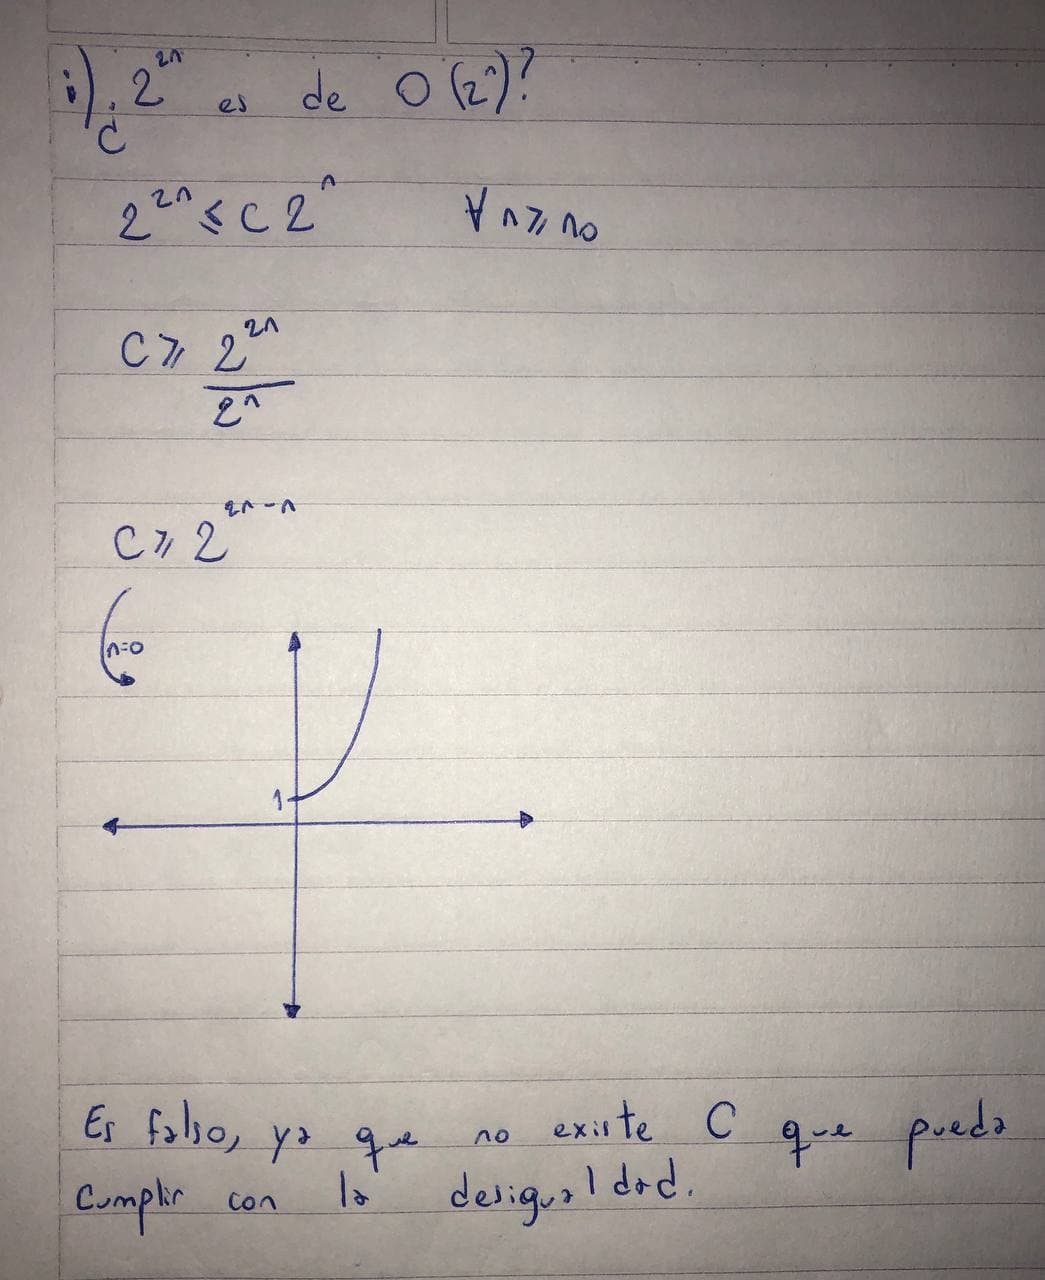 i) ¿2^{2n} es de O(2^n)?
2^{2n} ≤ C 2^n ∀ n ≥ n_0
C ≥ 2^{2n} / 2^n
C ≥ 2^{2n-n}
n=0
1
Es falso, ya que no existe C que pueda
cumplir con la desigualdad.